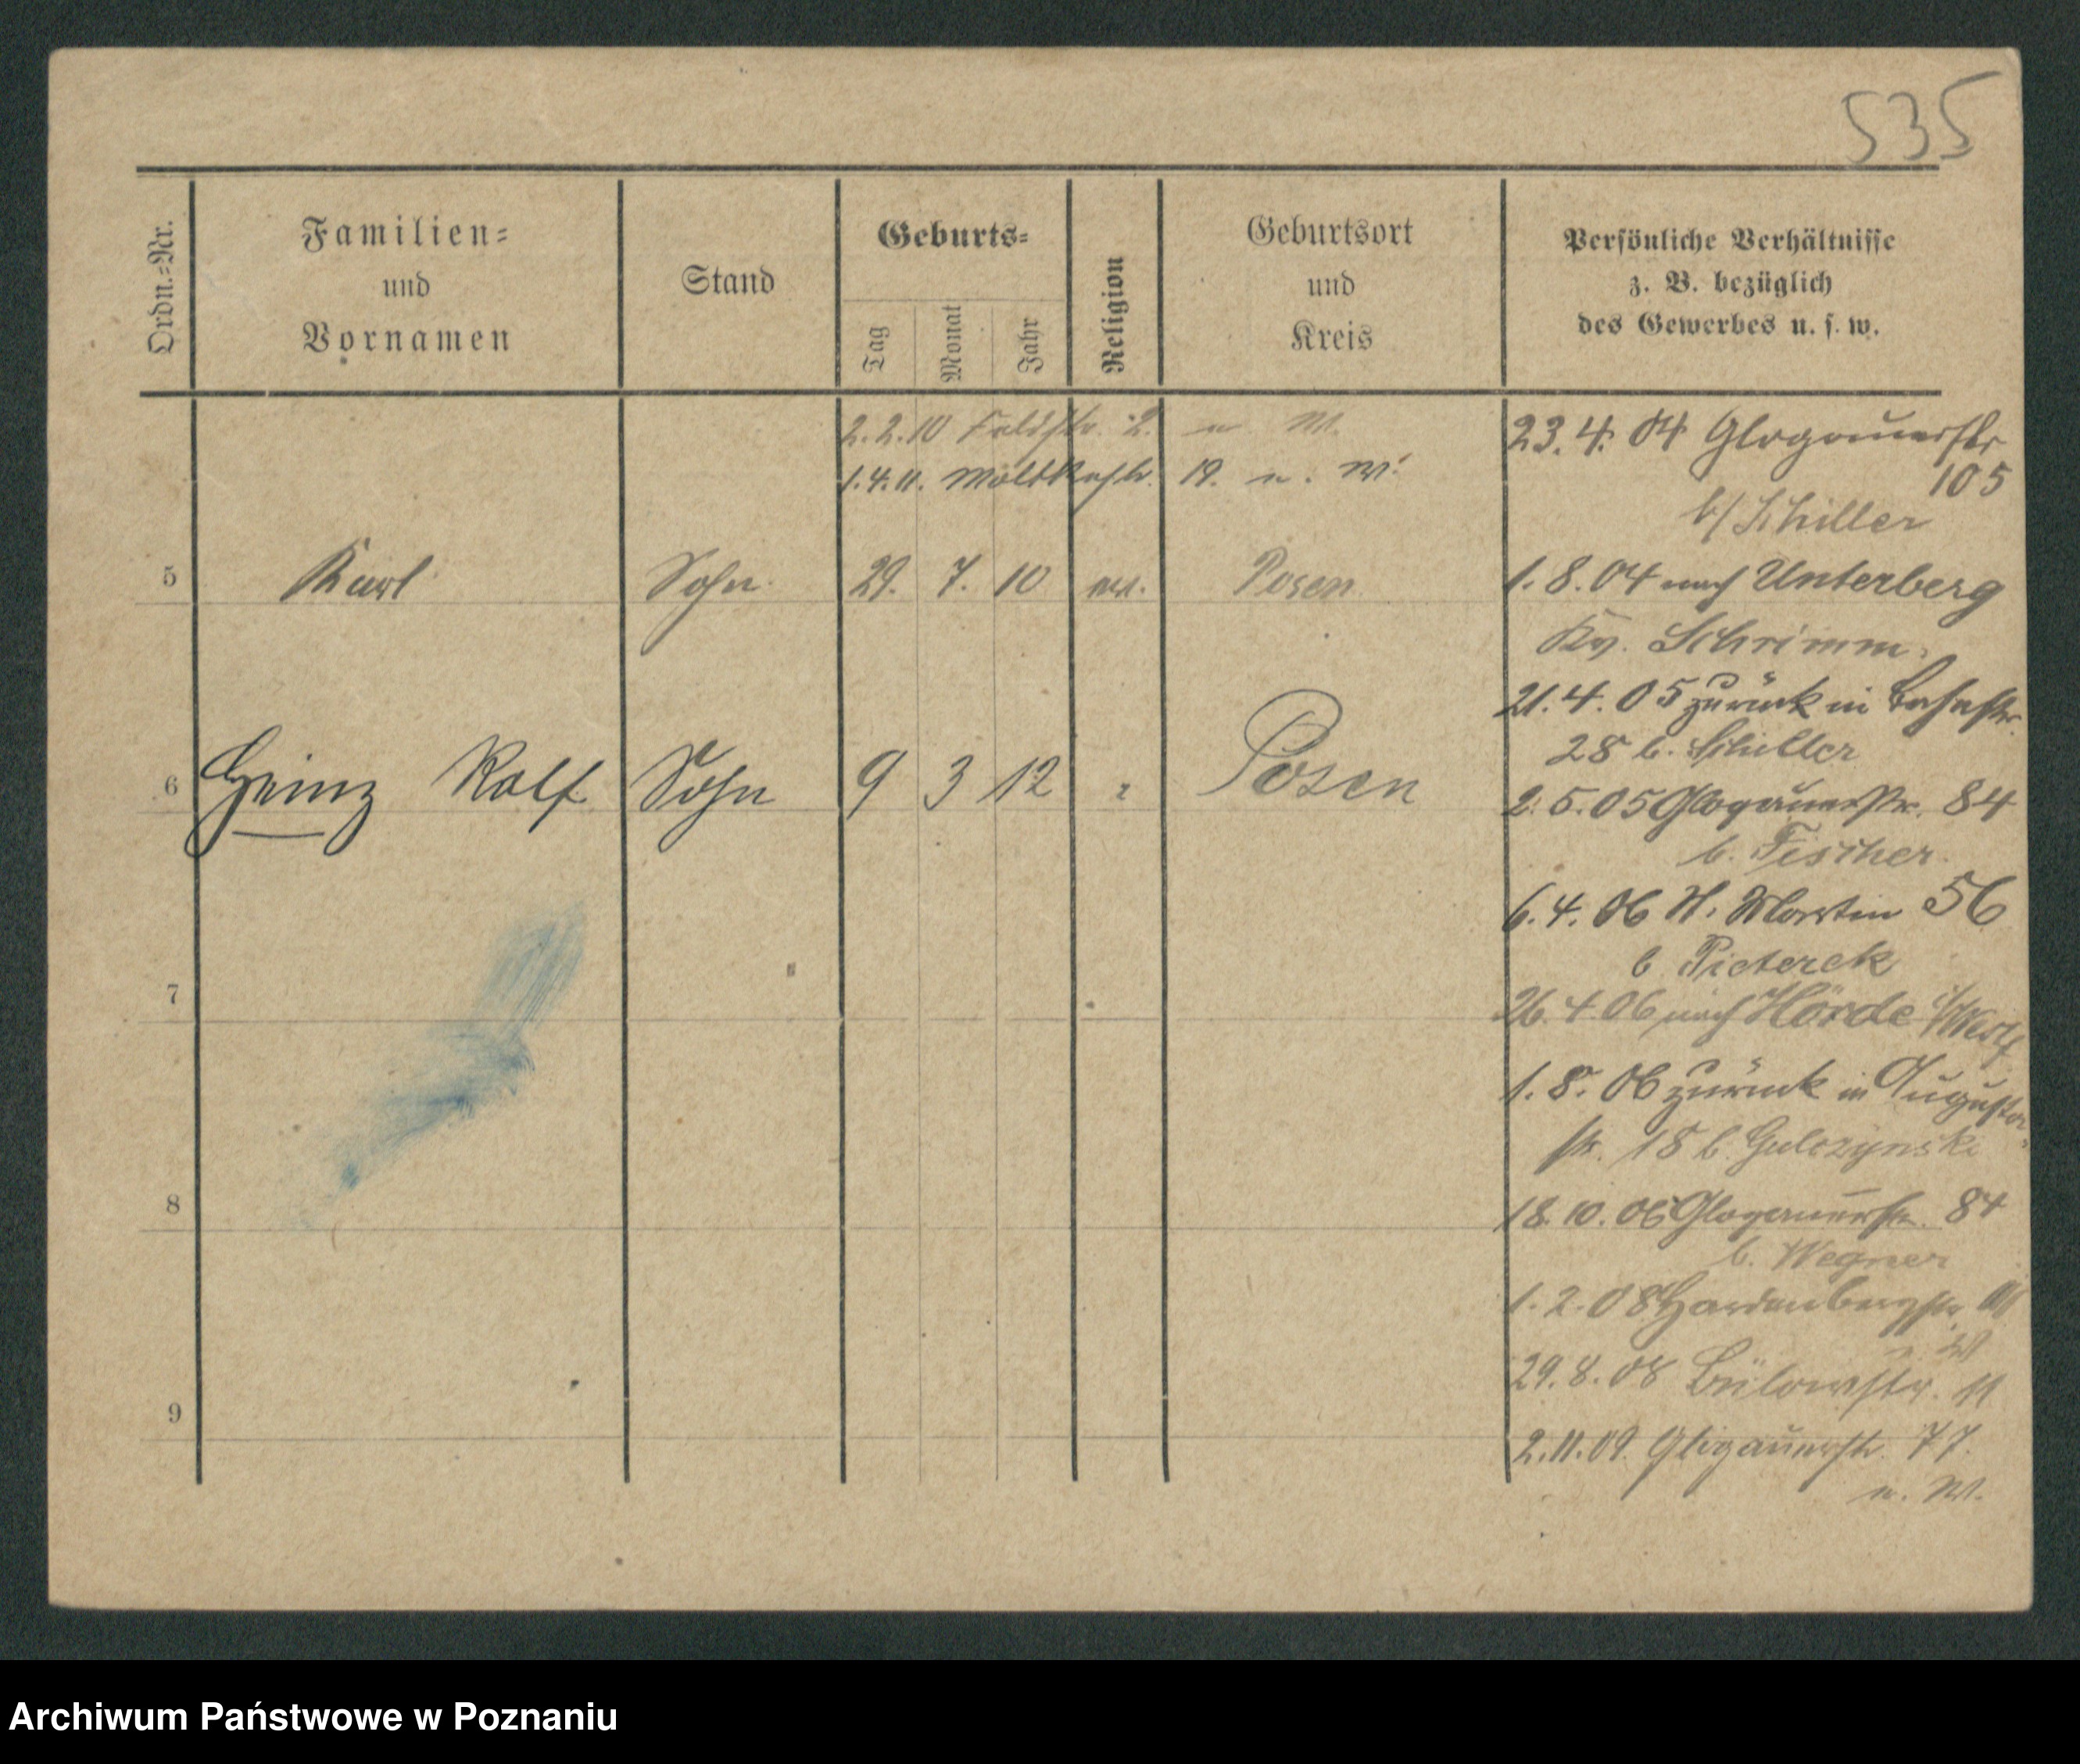 535
Ordn.-Nr.
Familien-
und
Vornamen
Stand
Geburts-
Tag
Monat
Jahr
Religion
Geburtsort
und
Kreis
Persönliche Verhältnisse
z. B. bezüglich
des Gewerbes u. s. w.
2.2.10 Feldstr. 2. n. W.
1.4.11. Moltkestr. 19. n. W.
5 Karl Sohn 29. 7. 10 Posen
6 Heinz Rolf Sohn 9 3 12 " Posen
7
8
9
23.4.04 Glogauerstr
105
b/ Schiller
1.8.04 nach Unterberg
Kr. Schrimm.
21.4.05 zurück in
28 b. Schiller
2.5.05 Glogauerstr. 84
b. Fischer.
6.4.06 St. Martin 56
b Pieterek
26.4.06 nach Hörde i/Westf
1.8.06 zurück in Augusta-
str. 18 b. Gulczynski
18.10.06 Glogauerstr. 84
b. Wegner
1.2.08 Hardenbergstr.
29.8.08 Bülowstr. 11
2.11.09. Glogauerstr. 77.
n. W.
Archiwum Państwowe w Poznaniu